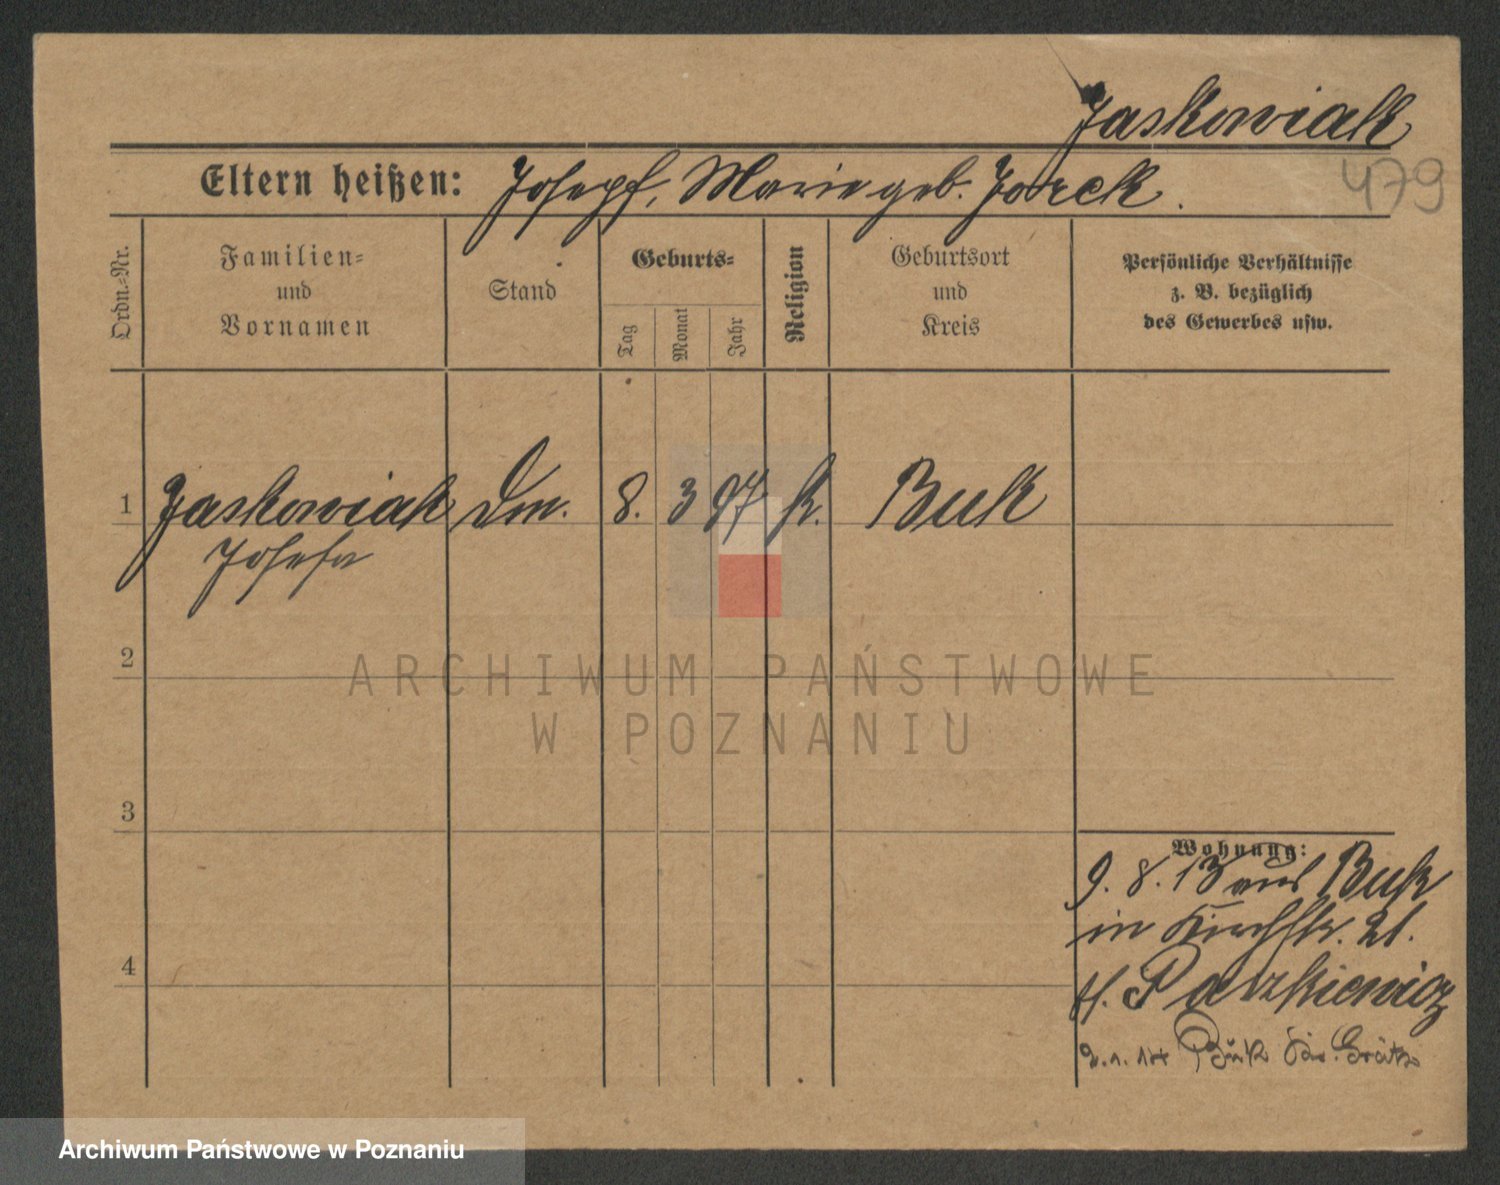 Jaskowiak
479
Eltern heißen: Josepf, Marie geb. Jorck.
Ordn.-Nr.
Familien-
und
Vornamen
Stand
Geburts-
Tag
Monat
Jahr
Religion
Geburtsort
und
Kreis
Persönliche Verhältnisse
z. B. bezüglich
des Gewerbes usw.
1 Jaskowiak Dm. 8. 3 97 k. Buk
Josefa
2
3
4
Wohnung:
9. 8. 13 aus Buk
in Kirchstr. 21.
Paszkiewicz
2. 1. 14 Kr. Grätz
ARCHIWUM PAŃSTWOWE
W POZNANIU
Archiwum Państwowe w Poznaniu